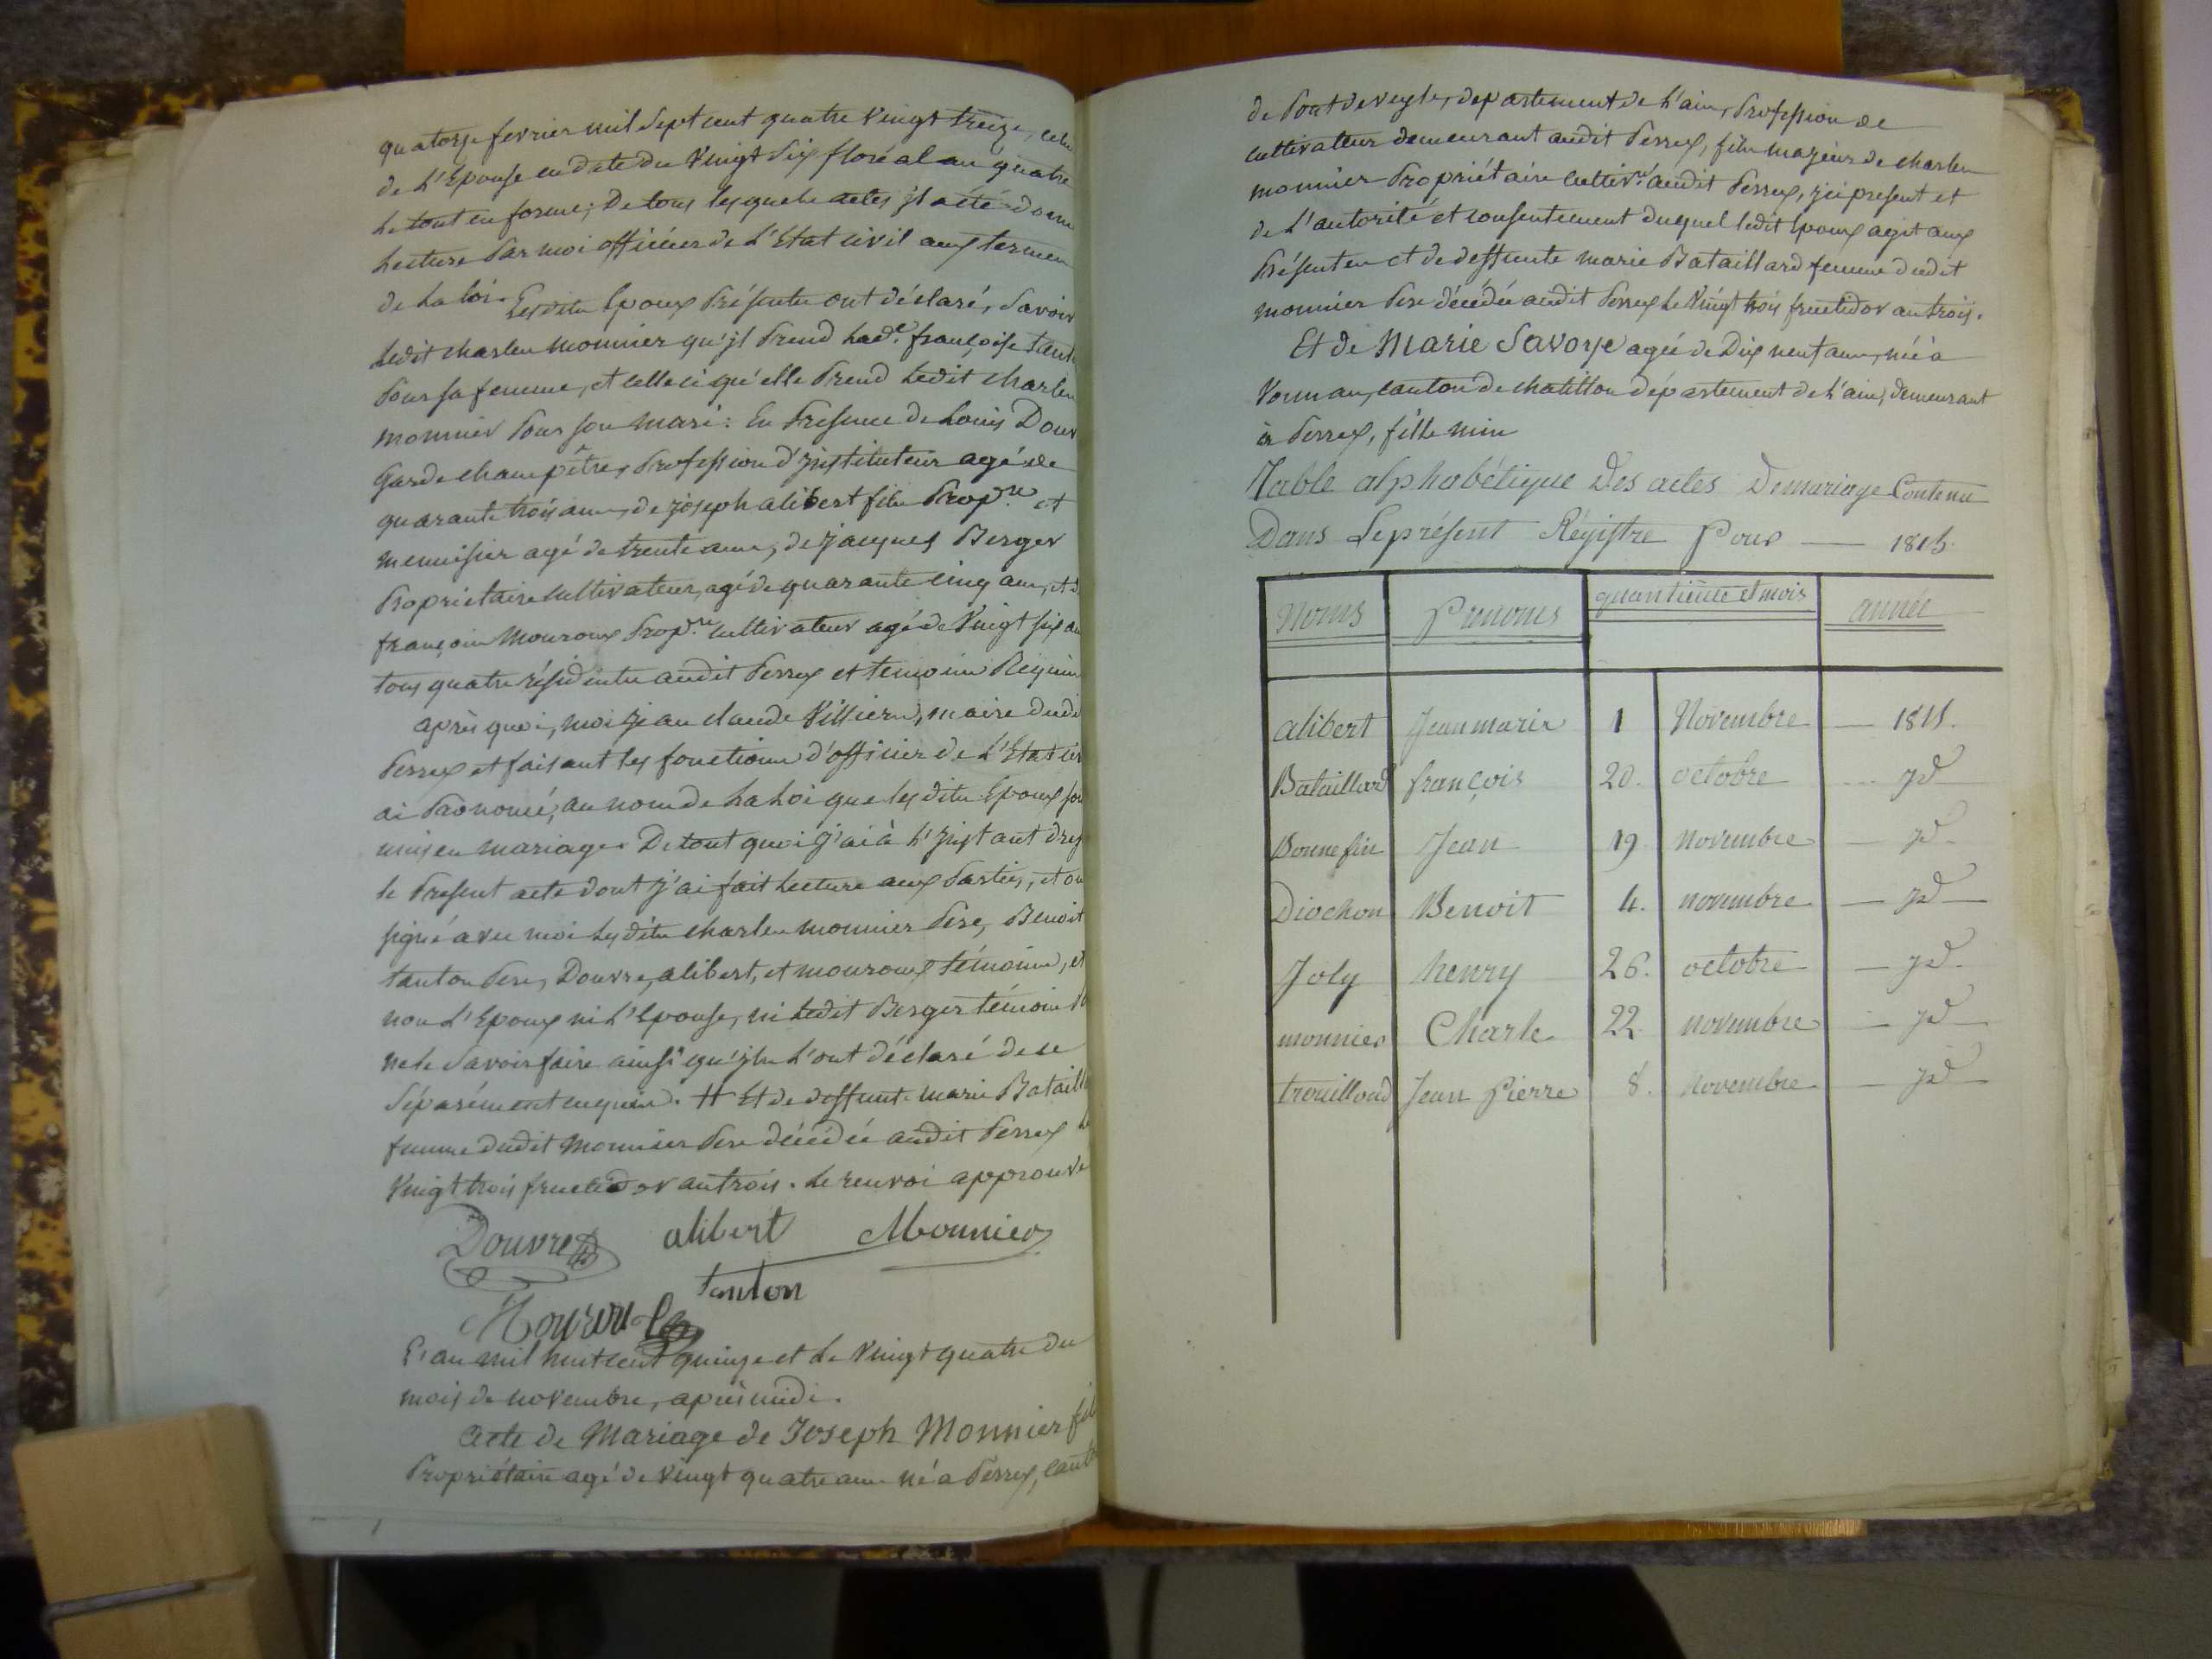 quatorze fevrier mil Sept cent quatre Vingt treize, celui
de L'Epouse en date du Vingt Six floréal an quatre
Le tout en forme; De tous lesquels actes jl a été donné
Lecture Par moi officier de L'Etat civil aux termes
de La loi. Lesdits Epoux Présents ont déclaré, Savoir
Ledit charles monnier qu'jl Prend Lade. françoise tant
Pour sa femme, et celle ci qu'elle Prend Ledit charles
monnier Pour son mari: En Presence de Louis Douv
Garde champêtre, Profession d'jnstituteur agé de
quarante trois ans, de joseph alibert fils Propre. et
menuisier agé de trente ans, de jacques Berger
Propriétaire cultivateur, agé de quarante cinq ans, et d
françois Mouroux Propre. cultivateur agé de Vingt six ans
tous quatre résidents audit Perrex et temoins Requis
après quoi, moi jean claude Villiers, maire dudi
Perrex et faisant les fonctions d'officier de L'Etat civ
ai Prononcé, au nom de La Loi que lesdits Epoux son
unis en mariage. De tout quoi j'ai à L'jnstant dres
le Present acte dont j'ai fait Lecture aux Parties, et on
signé avec moi Lesdits charles monnier Pere, Benoit
tanton Pere, Douvre, alibert, et mouroux témoins, et
non L'Epoux ni L'Epouse, ni Ledit Berger témoin Po
ne le Savoir faire ainsi qu'jls L'ont déclaré de ce
Séparément enquis. # Et de deffunte marie Bataill
femme dudit Monnier Pere décédée audit Perrex Le
Vingt trois fructidor an trois. Le renvoi approuvé
Douvre alibert Monnier
tanton
Mouroux
L'an mil huit cent quinze et Le Vingt quatre du
mois de novembre, après midi.
acte de Mariage de Joseph Monnier fils
Propriétaire agé de Vingt quatre ans né a Perrex, canto
de Pont de veyle, departement de L'ain, Profession de
cultivateur demeurant audit Perrex, fils majeur de charles
monnier Propriétaire cultivr. audit Perrex, jci present et
de L'autorité et consentement duquel Ledit Epoux agit aux
Présentes et de deffunte marie Bataillard femme dudit
monnier Pere décédée audit Perrex Le Vingt trois fructidor an trois.
Et de Marie Savoye agée de Dix neuf ans, née à
Vonnas, canton de chatillon département de L'ain, demeurant
à Perrex, fille min
Table alphabétique Des actes De mariage Contenu
Dans Le présent Régistre Pour — 1815.
Noms Prenoms quantieme et mois année
alibert Jean marie 1 Novembre — 1815.
Bataillard françois 20. octobre ... jd
Bonnefin Jean 19 novembre — jd
Diochon Benoit 4. novembre — jd —
Joly henry 26. octobre — jd.
monnier Charle 22. novembre — jd —
trouilloud Jean Pierre 8. Novembre — jd —